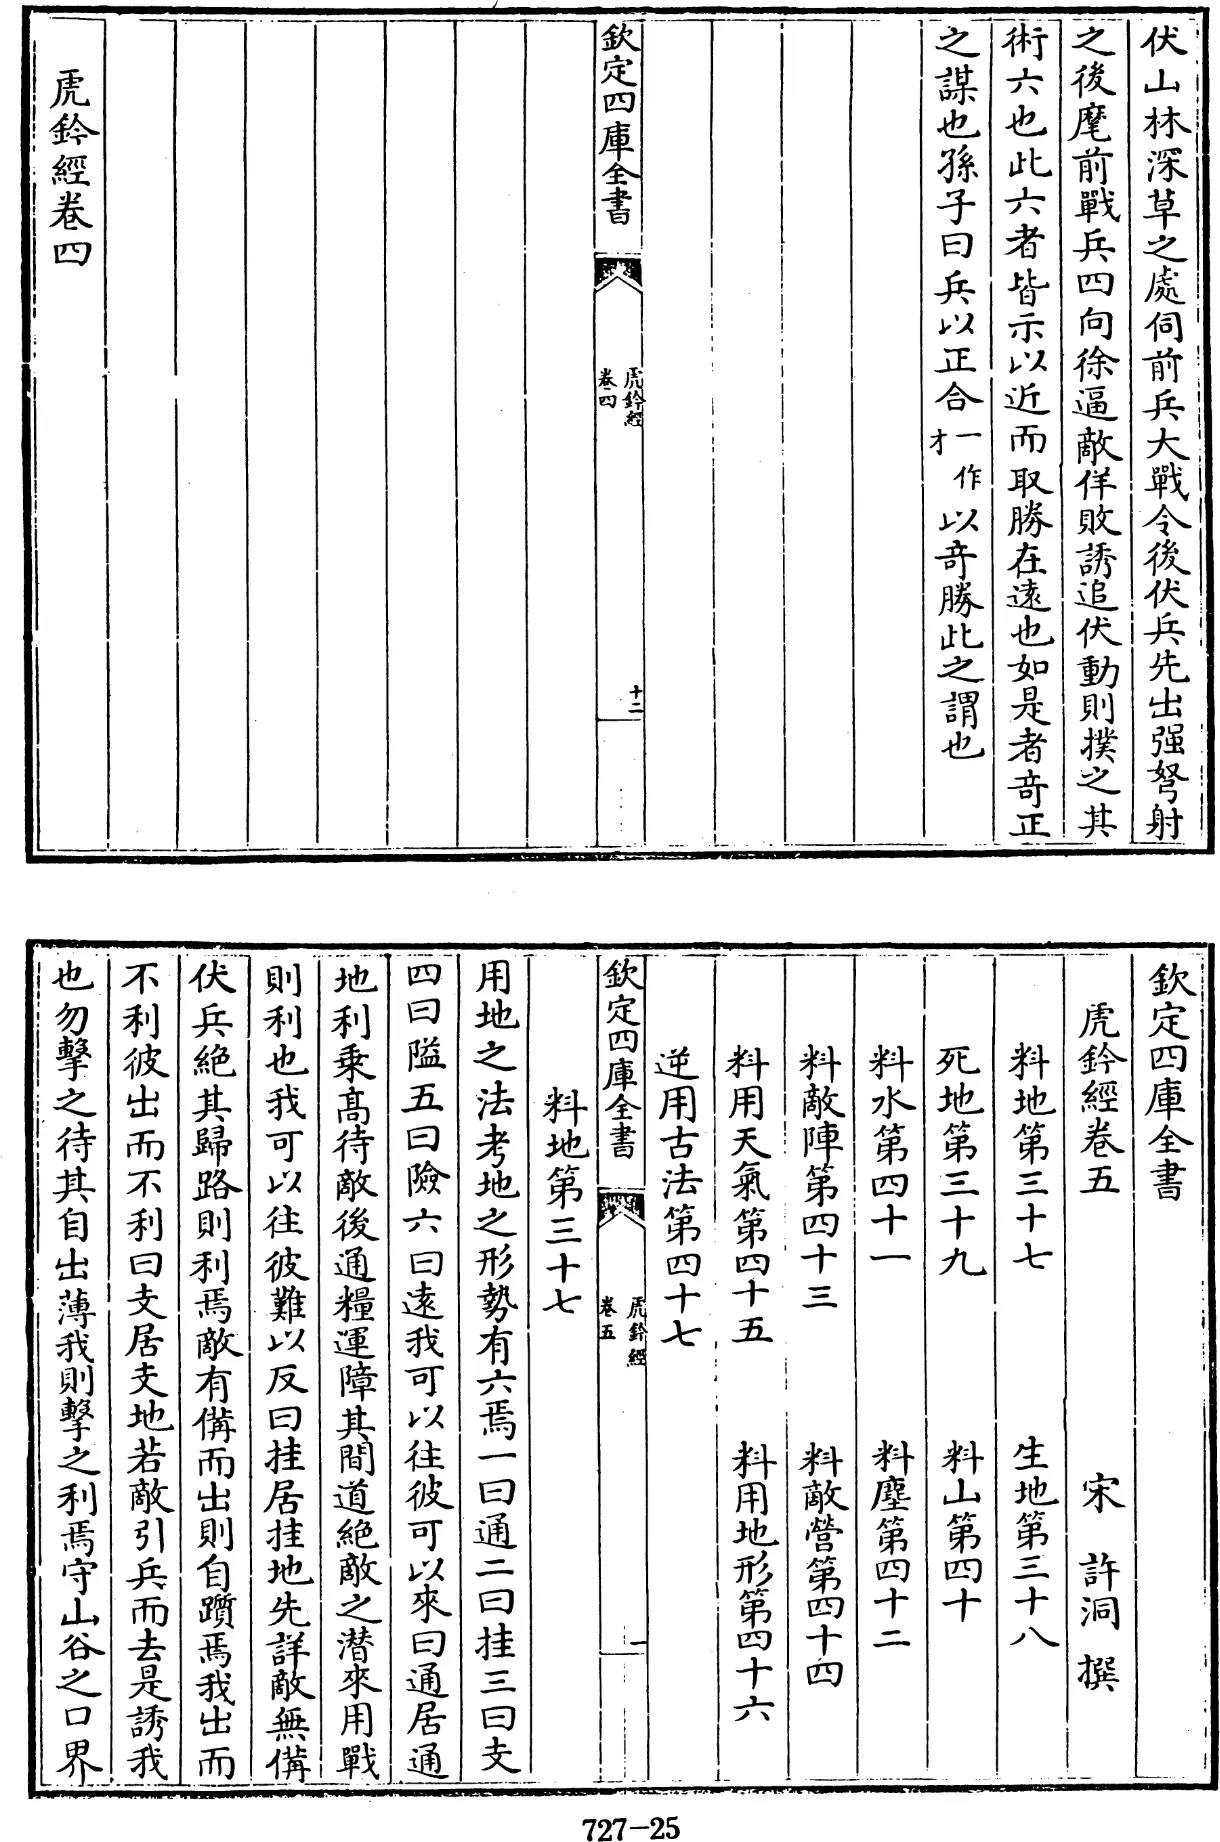 伏山林深草之處伺前兵大戰令後伏兵先出强弩射
之後麾前戰兵四向徐逼敵佯敗誘追伏動則撲之其
術六也此六者皆示以近而取勝在遠也如是者奇正
之謀也孫子曰兵以正合一作才以奇勝此之謂也
欽定四庫全書
虎鈐經
卷四
十二
虎鈐經卷四
欽定四庫全書
虎鈐經卷五 宋 許洞 撰
料地第三十七 生地第三十八
死地第三十九 料山第四十
料水第四十一 料塵第四十二
料敵陣第四十三 料敵營第四十四
料用天氣第四十五 料用地形第四十六
逆用古法第四十七
欽定四庫全書
虎鈐經
卷五
一
料地第三十七
用地之法考地之形勢有六焉一曰通二曰挂三曰支
四曰隘五曰險六曰遠我可以往彼可以來曰通居通
地利乗髙待敵後通糧運障其間道絶敵之潜來用戰
則利也我可以往彼難以反曰挂居挂地先詳敵無備
伏兵絶其歸路則利焉敵有備而出則自躓焉我出而
不利彼出而不利曰支居支地若敵引兵而去是誘我
也勿擊之待其自出薄我則擊之利焉守山谷之口界
727-25